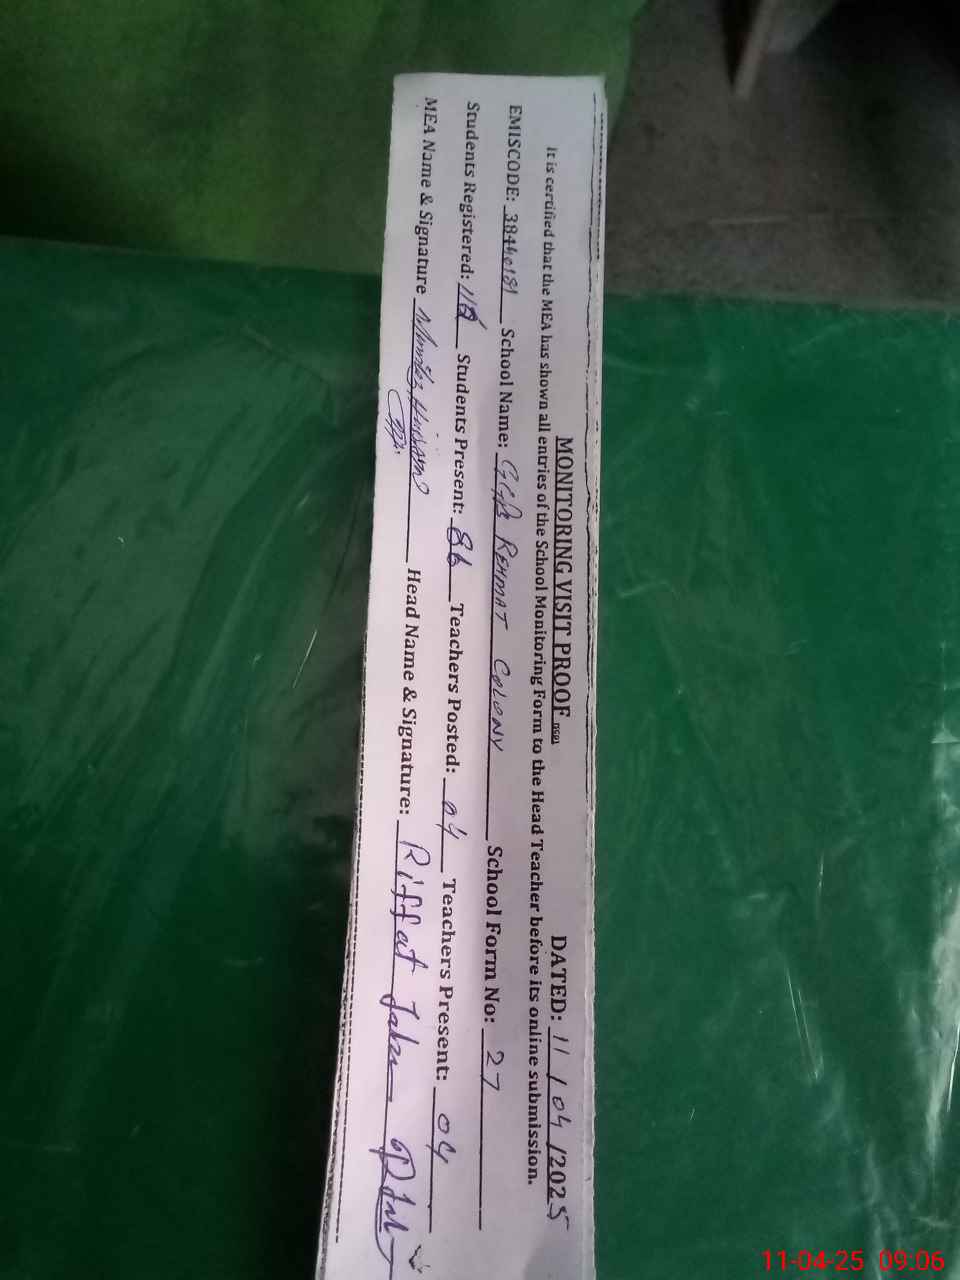 MONITORING VISIT PROOF DATED: 11/04/2025
It is certified that the MEA has shown all entries of the School Monitoring Form to the Head Teacher before its online submission.
EMISCODE: 38440181 School Name: GGPS REHMAT COLONY School Form No: 27
Students Registered: Students Present: 86 Teachers Posted: 04 Teachers Present: 04
MEA Name & Signature Hussain Head Name & Signature: Riffat
11-04-25 09:06